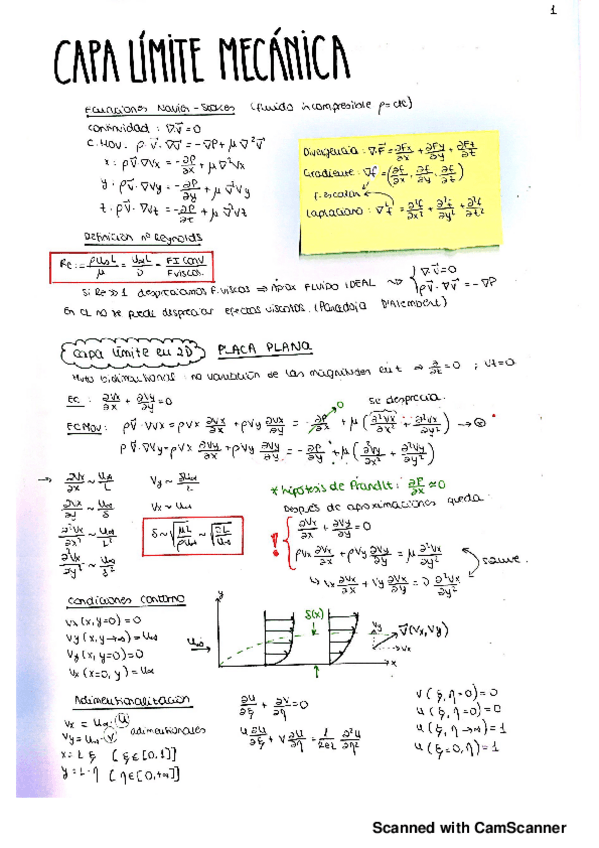 1
CAPA LÍMITE MECÁNICA
Ecuaciones Navier-Stokes (fluido incompresible ρ=cte)
Continuidad : ∇·V⃗=0
C.Mov. ρV⃗·∇V⃗ = -∇P + μ∇²V⃗
x: ρV⃗·∇Vx = -∂P/∂x + μ∇²Vx
y: ρV⃗·∇Vy = -∂P/∂y + μ∇²Vy
z: ρV⃗·∇Vz = -∂P/∂z + μ∇²Vz
Divergencia : ∇·F⃗ = ∂Fx/∂x + ∂Fy/∂y + ∂Fz/∂z
Gradiente : ∇f = (∂f/∂x, ∂f/∂y, ∂f/∂z)
f.escalar
Laplaciano : ∇²f = ∂²f/∂x² + ∂²f/∂y² + ∂²f/∂z²
Definición nº Reynolds
Re := ρU∞L/μ = U∞L/ν = F.I CONV/F.VISCOS.
Si Re>>1 despreciamos F.viscos ⇒ Aprox FLUIDO IDEAL ⇒ { ∇·V⃗=0
ρV⃗·∇V⃗ = -∇P
En CL no se puede despreciar efectos viscosos. (Paradoja D'Alembert)
Capa límite en 2D PLACA PLANA
Mov. bidimensional : no variación de las magnitudes en z ⇒ ∂/∂z = 0 ; Vz=0
EC : ∂Vx/∂x + ∂Vy/∂y = 0
se desprecia.
0
EC Mov : ρV⃗·∇Vx = ρVx ∂Vx/∂x + ρVy ∂Vx/∂y = -∂P/∂x + μ(∂²Vx/∂x² + ∂²Vx/∂y²) →
ρV⃗·∇Vy = ρVx ∂Vy/∂x + ρVy ∂Vy/∂y = -∂P/∂y + μ(∂²Vy/∂x² + ∂²Vy/∂y²)
→ ∂Vx/∂x ~ U∞/L Vy ~ δU∞/L
∂Vx/∂y ~ U∞/δ Vx ~ U∞
∂²Vx/∂x² ~ U∞/L²
∂²Vx/∂y² ~ U∞/δ²
δ ~ √(μL/ρU∞) ~ √(νL/U∞)
* hipótesis de Prandtl : ∂P/∂x ≈ 0
Después de aproximaciones queda
! { ∂Vx/∂x + ∂Vy/∂y = 0
ρVx ∂Vx/∂x + ρVy ∂Vx/∂y = μ ∂²Vx/∂y²
↳ Vx ∂Vx/∂x + Vy ∂Vx/∂y = ν ∂²Vx/∂y²
Condiciones contorno
Vx (x,y=0) = 0
Vy (x,y→∞) = U∞
Vy (x,y=0) = 0
Vx (x=0,y) = U∞
U∞
y
δ(x)
x
Vy
Vx
V⃗(Vx,Vy)
Adimensionalización
Vx = U∞·U
Vy = U∞·V
adimensionales
x = L·ξ [ξ∈[0,1]]
y = L·η [η∈[0,+∞]]
∂U/∂ξ + ∂V/∂η = 0
U ∂U/∂ξ + V ∂U/∂η = 1/ReL ∂²U/∂η²
V (ξ,η=0) = 0
U (ξ,η=0) = 0
U (ξ,η→∞) = 1
U (ξ=0,η) = 1
Scanned with CamScanner